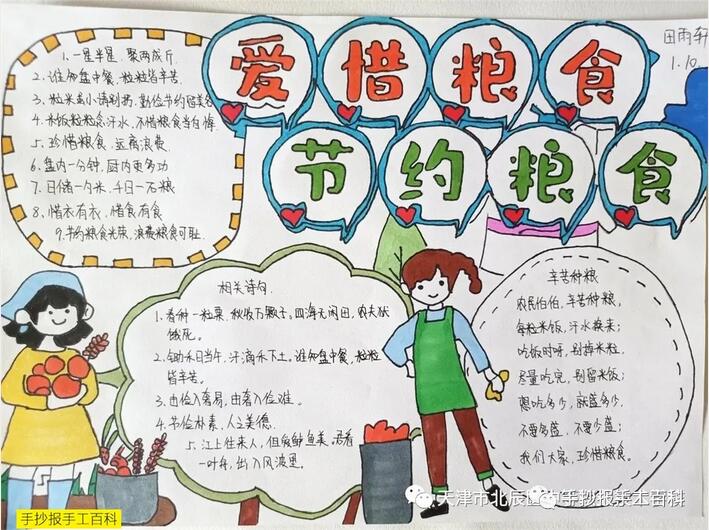 爱惜粮食
节约粮食
田雨轩
1.10.
1.一星半星,聚两成斤
2.谁知盘中餐,粒粒皆辛苦
3、粒米虽小请别扔,勤俭节约留美名
4、米饭粒粒含汗水,不惜粮食当自悔
5、珍惜粮食,远离浪费
6、盘内一分钟,厨内更多功
7、日储一勺米,千日一石粮
8、惜衣有衣,惜食有食
9.节约粮食光荣,浪费粮食可耻
相关诗句
1.春种一粒粟,秋收万颗子。四海无闲田,农夫犹
饿死。
2.锄禾日当午,汗滴禾下土。谁知盘中餐,粒粒
皆辛苦。
3、由俭入奢易,由奢入俭难。
4、节俭朴素,人之美德。
5、江上往来人,但爱鲈鱼美,君看
一叶舟,出入风波里。
辛苦种粮
农民伯伯,辛苦种粮,
每粒米饭,汗水换来;
吃饭时呀,别掉米粒,
尽量吃完,别留米饭;
想吃多少,就盛多少,
不要多盛,不要少盛;
我们大家,珍惜粮食。
手抄报手工百科
天津市北辰区
手抄报手工百科